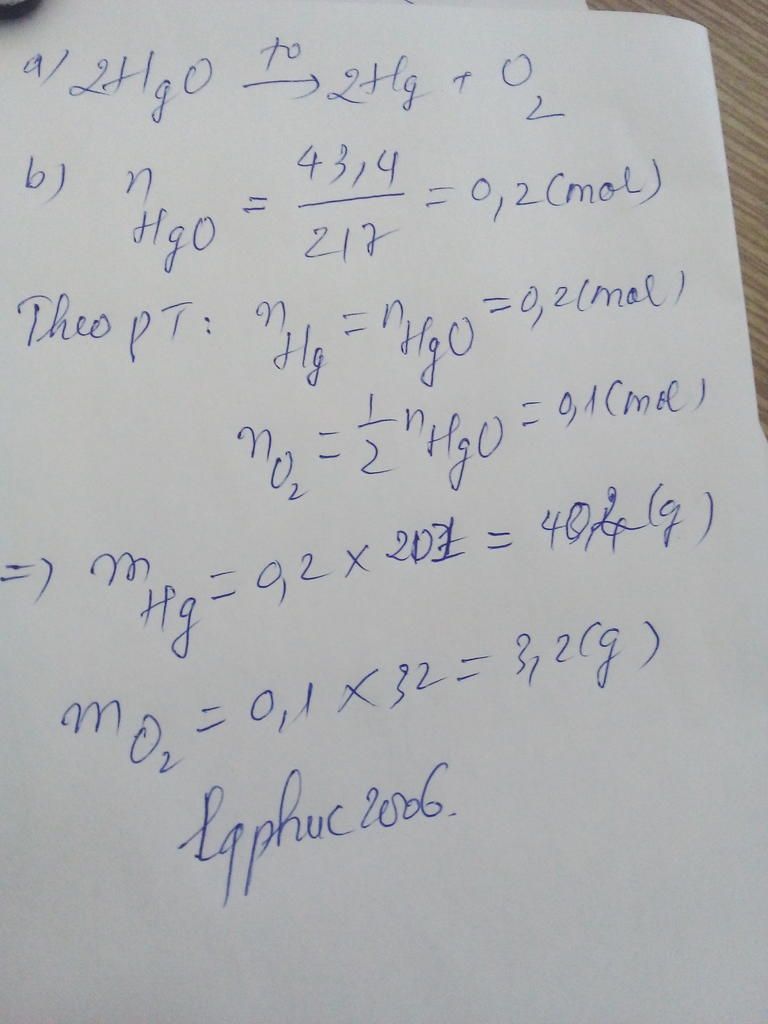 a) 2HgO t° → 2Hg + O2
b) nHgO = 43,4 / 217 = 0,2 (mol)
Theo pT: nHg = nHgO = 0,2 (mol)
nO2 = 1/2 nHgO = 0,1 (mol)
=> mHg = 0,2 x 201 = 40,2 (g)
mO2 = 0,1 x 32 = 3,2 (g)
lqphuc2006.